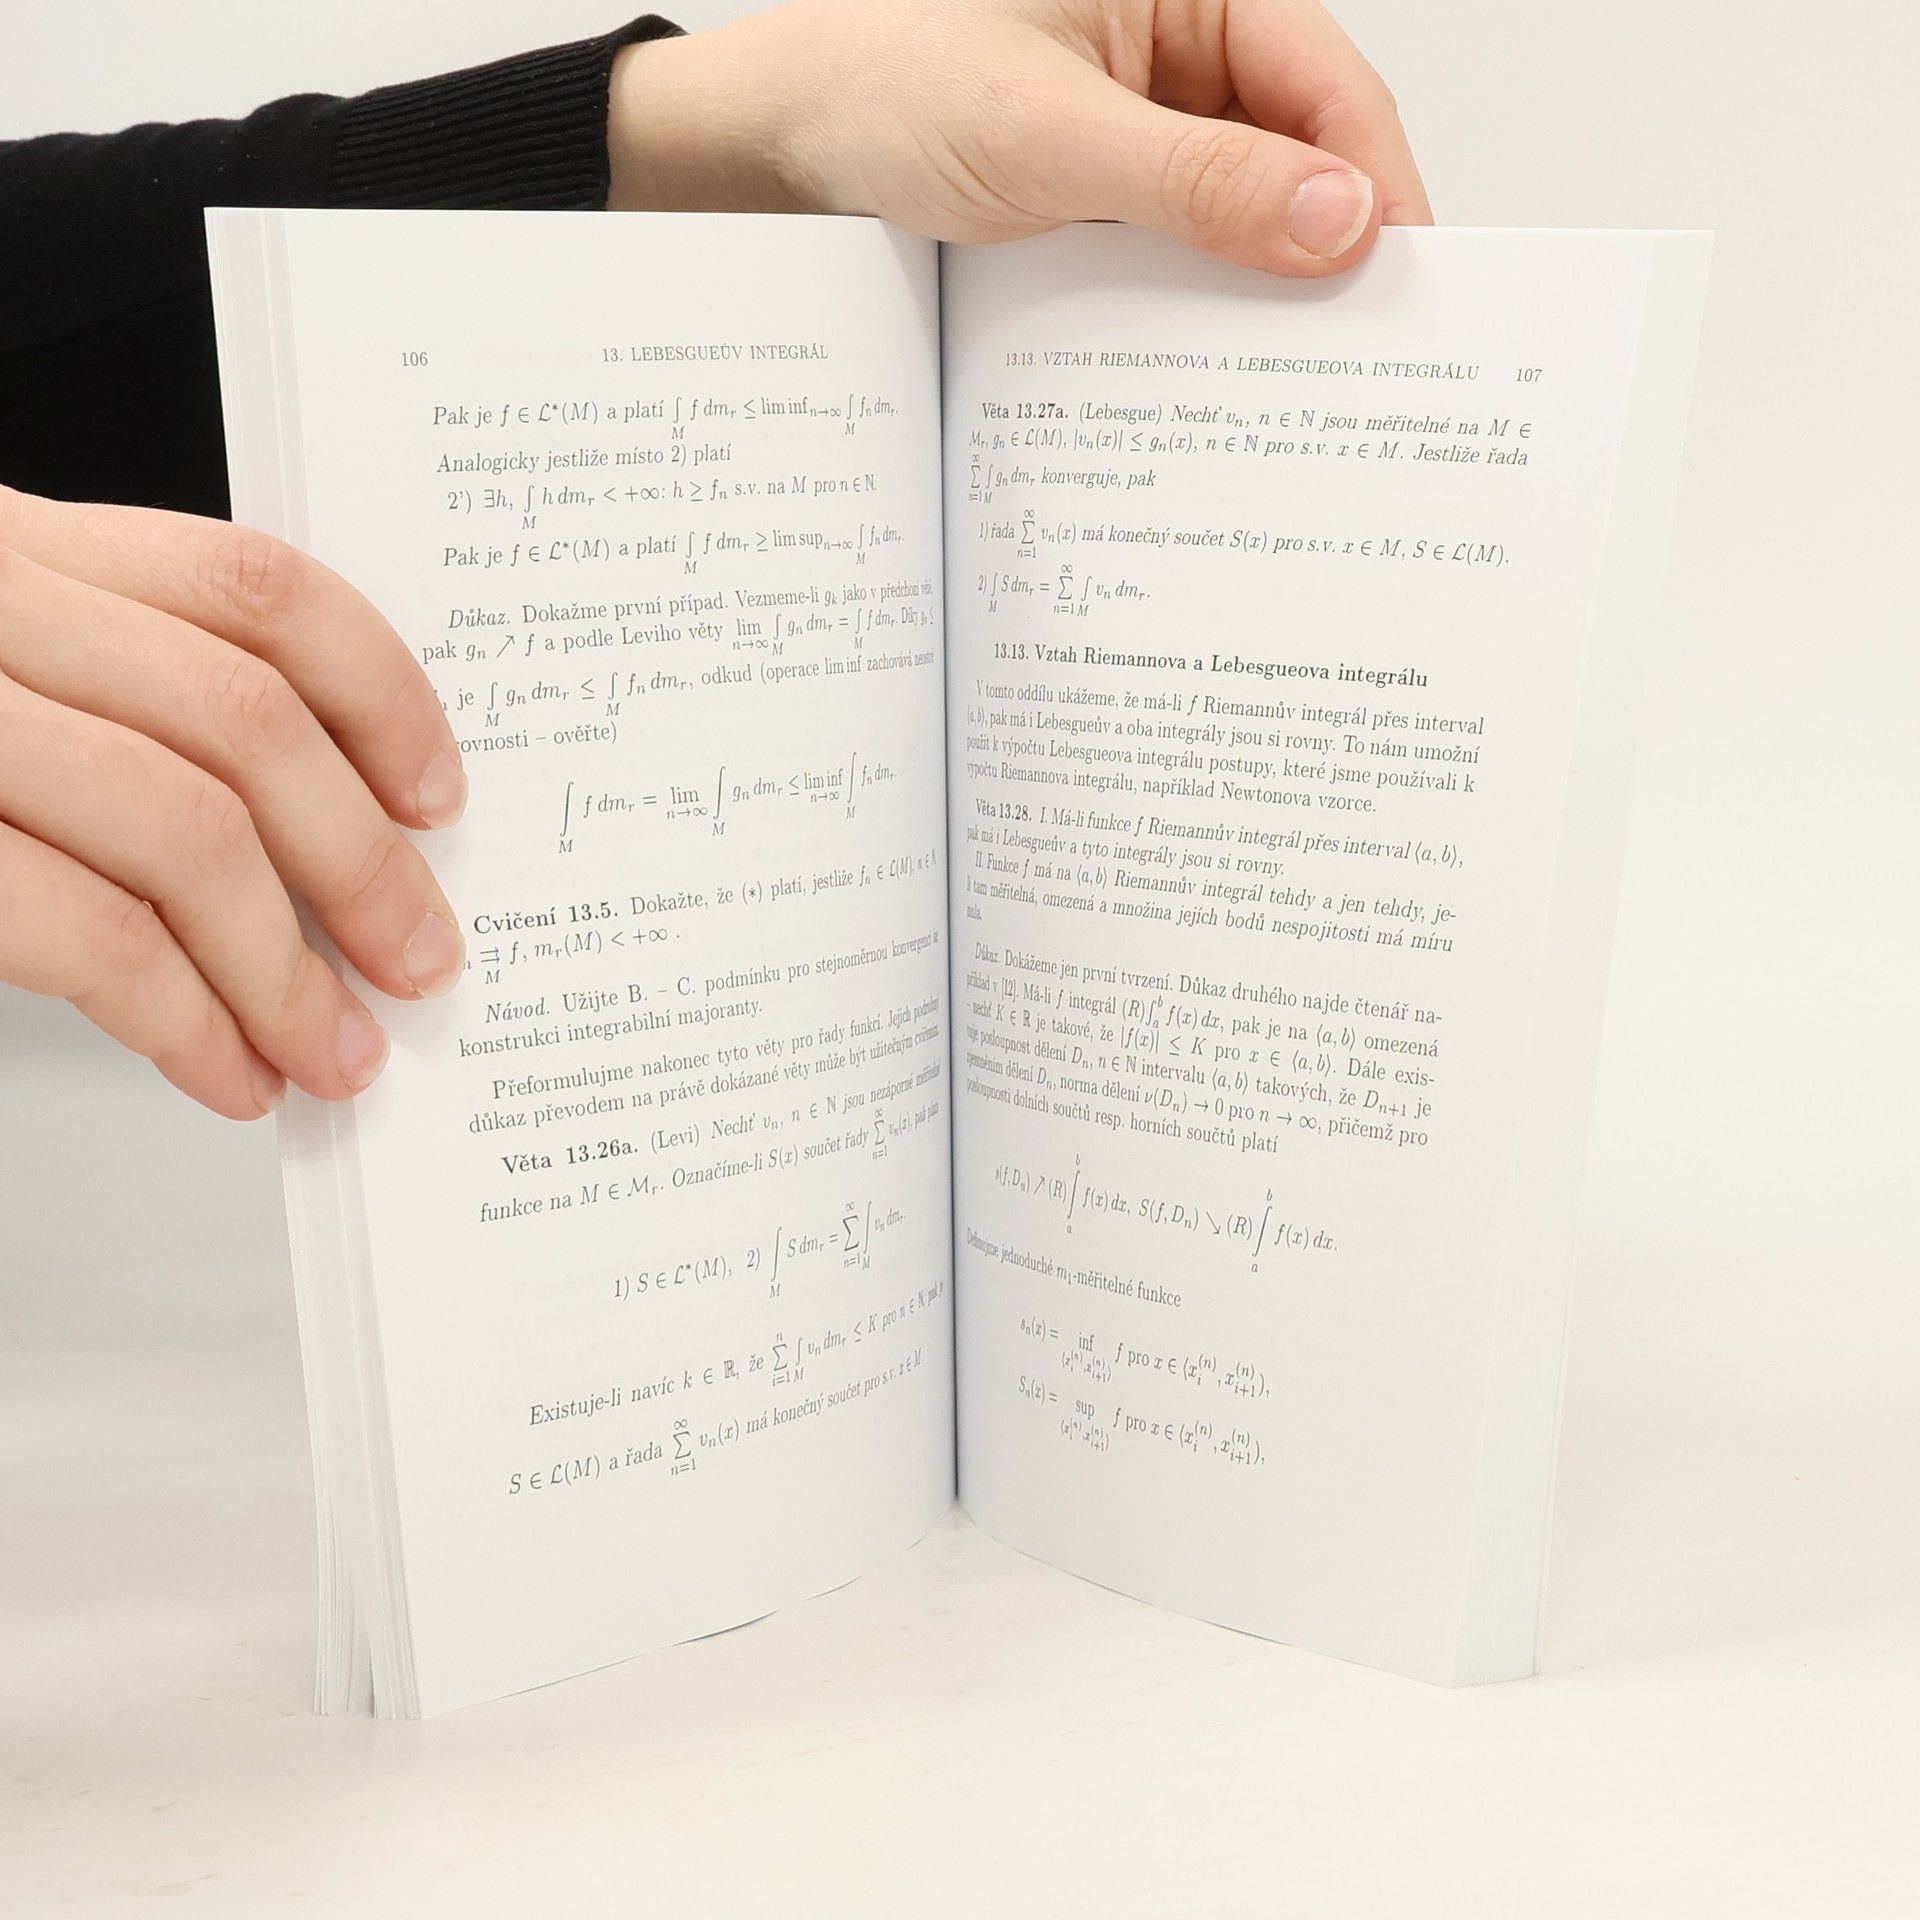 106 13. LEBESGUEŮV INTEGRÁL
Pak je f ∈ ℒ*(M) a platí ∫_M f dm_r ≤ lim inf_{n→∞} ∫_M f_n dm_r.
Analogicky jestliže místo 2) platí
2') ∃h, ∫_M h dm_r < +∞: h ≥ f_n s.v. na M pro n ∈ ℕ.
Pak je f ∈ ℒ*(M) a platí ∫_M f dm_r ≥ lim sup_{n→∞} ∫_M f_n dm_r.
Důkaz. Dokažme první případ. Vezmeme-li g_k jako v předchozí větě,
pak g_n ↗ f a podle Leviho věty lim_{n→∞} ∫_M g_n dm_r = ∫_M f dm_r. Díky g_n ≤
je ∫_M g_n dm_r ≤ ∫_M f_n dm_r, odkud (operace lim inf zachovává neostré
rovnosti – ověřte)
∫_M f dm_r = lim_{n→∞} ∫_M g_n dm_r ≤ lim inf_{n→∞} ∫_M f_n dm_r.
Cvičení 13.5. Dokažte, že (*) platí, jestliže f_n ∈ ℒ(M), n ∈ ℕ,
⇉_M f, m_r(M) < +∞ .
Návod. Užijte B. – C. podmínku pro stejnoměrnou konvergenci ke
konstrukci integrabilní majoranty.
Přeformulujme nakonec tyto věty pro řady funkcí. Jejich podrobný
důkaz převodem na právě dokázané věty může být užitečným cvičením.
Věta 13.26a. (Levi) Nechť v_n, n ∈ ℕ jsou nezáporné měřitelné
funkce na M ∈ ℳ_r. Označíme-li S(x) součet řady ∑_{n=1}^∞ v_n(x), pak platí
1) S ∈ ℒ*(M), 2) ∫_M S dm_r = ∑_{n=1}^∞ ∫_M v_n dm_r.
Existuje-li navíc k ∈ ℝ, že ∑_{i=1}^n ∫_M v_n dm_r ≤ K pro n ∈ ℕ, pak je
S ∈ ℒ(M) a řada ∑_{n=1}^∞ v_n(x) má konečný součet pro s.v. x ∈ M.
13.13. VZTAH RIEMANNOVA A LEBESGUEOVA INTEGRÁLU 107
Věta 13.27a. (Lebesgue) Nechť v_n, n ∈ ℕ jsou měřitelné na M ∈
ℳ_r, g_n ∈ ℒ(M), |v_n(x)| ≤ g_n(x), n ∈ ℕ pro s.v. x ∈ M. Jestliže řada
∑_{n=1}^∞ ∫_M g_n dm_r konverguje, pak
1) řada ∑_{n=1}^∞ v_n(x) má konečný součet S(x) pro s.v. x ∈ M, S ∈ ℒ(M).
2) ∫_M S dm_r = ∑_{n=1}^∞ ∫_M v_n dm_r.
13.13. Vztah Riemannova a Lebesgueova integrálu
V tomto oddílu ukážeme, že má-li f Riemannův integrál přes interval
⟨a, b⟩, pak má i Lebesgueův a oba integrály jsou si rovny. To nám umožní
použít k výpočtu Lebesgueova integrálu postupy, které jsme používali k
výpočtu Riemannova integrálu, například Newtonova vzorce.
Věta 13.28. I. Má-li funkce f Riemannův integrál přes interval ⟨a, b⟩,
pak má i Lebesgueův a tyto integrály jsou si rovny.
II. Funkce f má na ⟨a, b⟩ Riemannův integrál tehdy a jen tehdy, je-
li tam měřitelná, omezená a množina jejích bodů nespojitosti má míru
nula.
Důkaz. Dokážeme jen první tvrzení. Důkaz druhého najde čtenář na-
příklad v [12]. Má-li f integrál (R)∫_a^b f(x) dx, pak je na ⟨a, b⟩ omezená
– nechť K ∈ ℝ je takové, že |f(x)| ≤ K pro x ∈ ⟨a, b⟩. Dále exis-
tuje posloupnost dělení D_n, n ∈ ℕ intervalu ⟨a, b⟩ takových, že D_{n+1} je
zjemněním dělení D_n, norma dělení ν(D_n) → 0 pro n → ∞, přičemž pro
posloupnosti dolních součtů resp. horních součtů platí
s(f, D_n) ↗ (R)∫_a^b f(x) dx, S(f, D_n) ↘ (R)∫_a^b f(x) dx.
Definujme jednoduché m_1-měřitelné funkce
s_n(x) = inf_{⟨x_i^{(n)}, x_{i+1}^{(n)}⟩} f pro x ∈ ⟨x_i^{(n)}, x_{i+1}^{(n)}),
S_n(x) = sup_{⟨x_i^{(n)}, x_{i+1}^{(n)}⟩} f pro x ∈ ⟨x_i^{(n)}, x_{i+1}^{(n)}),